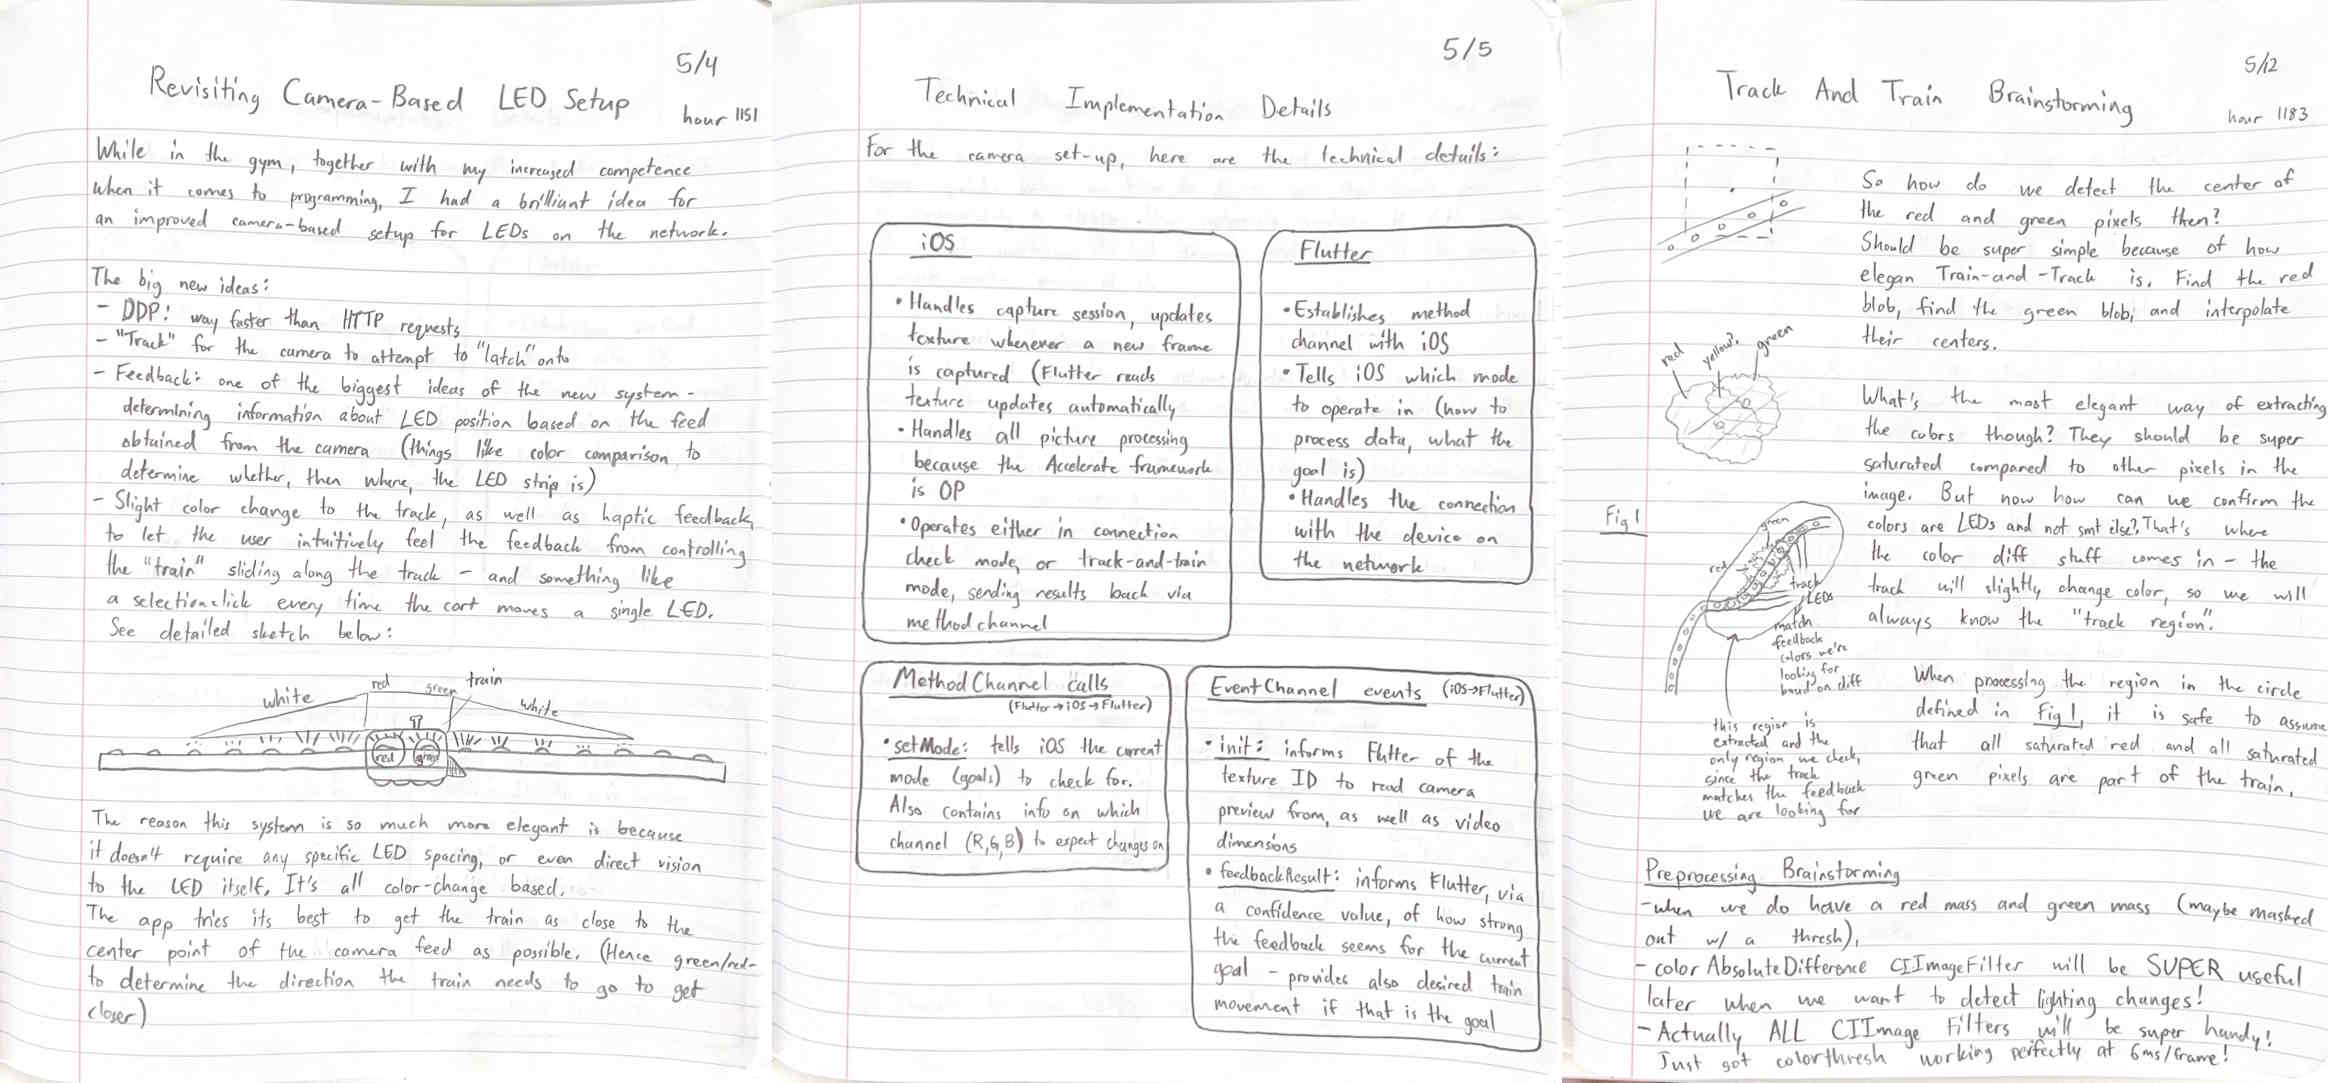 5/4
Revisiting Camera-Based LED Setup
hour 1151
While in the gym, together with my increased competence
when it comes to programming, I had a brilliant idea for
an improved camera-based setup for LEDs on the network.
The big new ideas:
- DDP! way faster than HTTP requests
- "Track" for the camera to attempt to "latch" onto
- Feedback: one of the biggest ideas of the new system -
determining information about LED position based on the feed
obtained from the camera (things like color comparison to
determine whether, then where, the LED strip is)
- Slight color change to the track, as well as haptic feedback,
to let the user intuitively feel the feedback from controlling
the "train" sliding along the track - and something like
a selectionclick every time the cart moves a single LED.
See detailed sketch below:
white
red
green
train
white
red
green
The reason this system is so much more elegant is because
it doesn't require any specific LED spacing, or even direct vision
to the LED itself. It's all color-change based.
The app tries its best to get the train as close to the
center point of the camera feed as possible. (Hence green/red-
to determine the direction the train needs to go to get
closer)
5/5
Technical Implementation Details
For the camera set-up, here are the technical details:
iOS
• Handles capture session, updates
texture whenever a new frame
is captured (Flutter reads
texture updates automatically
• Handles all picture processing
because the Accelerate framework
is OP
• Operates either in connection
check mode, or track-and-train
mode, sending results back via
methodchannel
Flutter
• Establishes method
channel with iOS
• Tells iOS which mode
to operate in (how to
process data, what the
goal is)
• Handles the connection
with the device on
the network
MethodChannel calls
(Flutter→iOS→Flutter)
• setMode: tells iOS the current
mode (goals) to check for.
Also contains info on which
channel (R,G,B) to expect changes on
EventChannel events (iOS→Flutter)
• init: informs Flutter of the
texture ID to read camera
preview from, as well as video
dimensions
• feedbackResult: informs Flutter, via
a confidence value, of how strong
the feedback seems for the current
goal - provides also desired train
movement if that is the goal
5/12
Track And Train Brainstorming
hour 1183
So how do we detect the center of
the red and green pixels then?
Should be super simple because of how
elegan Train-and-Track is. Find the red
blob, find the green blob, and interpolate
their centers.
red
yellow?
green
What's the most elegant way of extracting
the colors though? They should be super
saturated compared to other pixels in the
image. But now how can we confirm the
colors are LEDs and not smt else? That's where
the color diff stuff comes in - the
track will slightly change color, so we will
always know the "track region".
Fig 1
green
red
track
LEDs
match
feedback
colors we're
looking for
based on diff
this region is
extracted and the
only region we check,
since the track
matches the feedback
we are looking for
When processing the region in the circle
defined in Fig 1, it is safe to assume
that all saturated red and all saturated
green pixels are part of the train.
Preprocessing Brainstorming
- when we do have a red mass and green mass (maybe masked
out w/ a thresh),
- colorAbsoluteDifference CIImageFilter will be SUPER useful
later when we want to detect lighting changes!
- Actually ALL CIImage Filters will be super handy!
Just got colorthresh working perfectly at 6ms/frame!